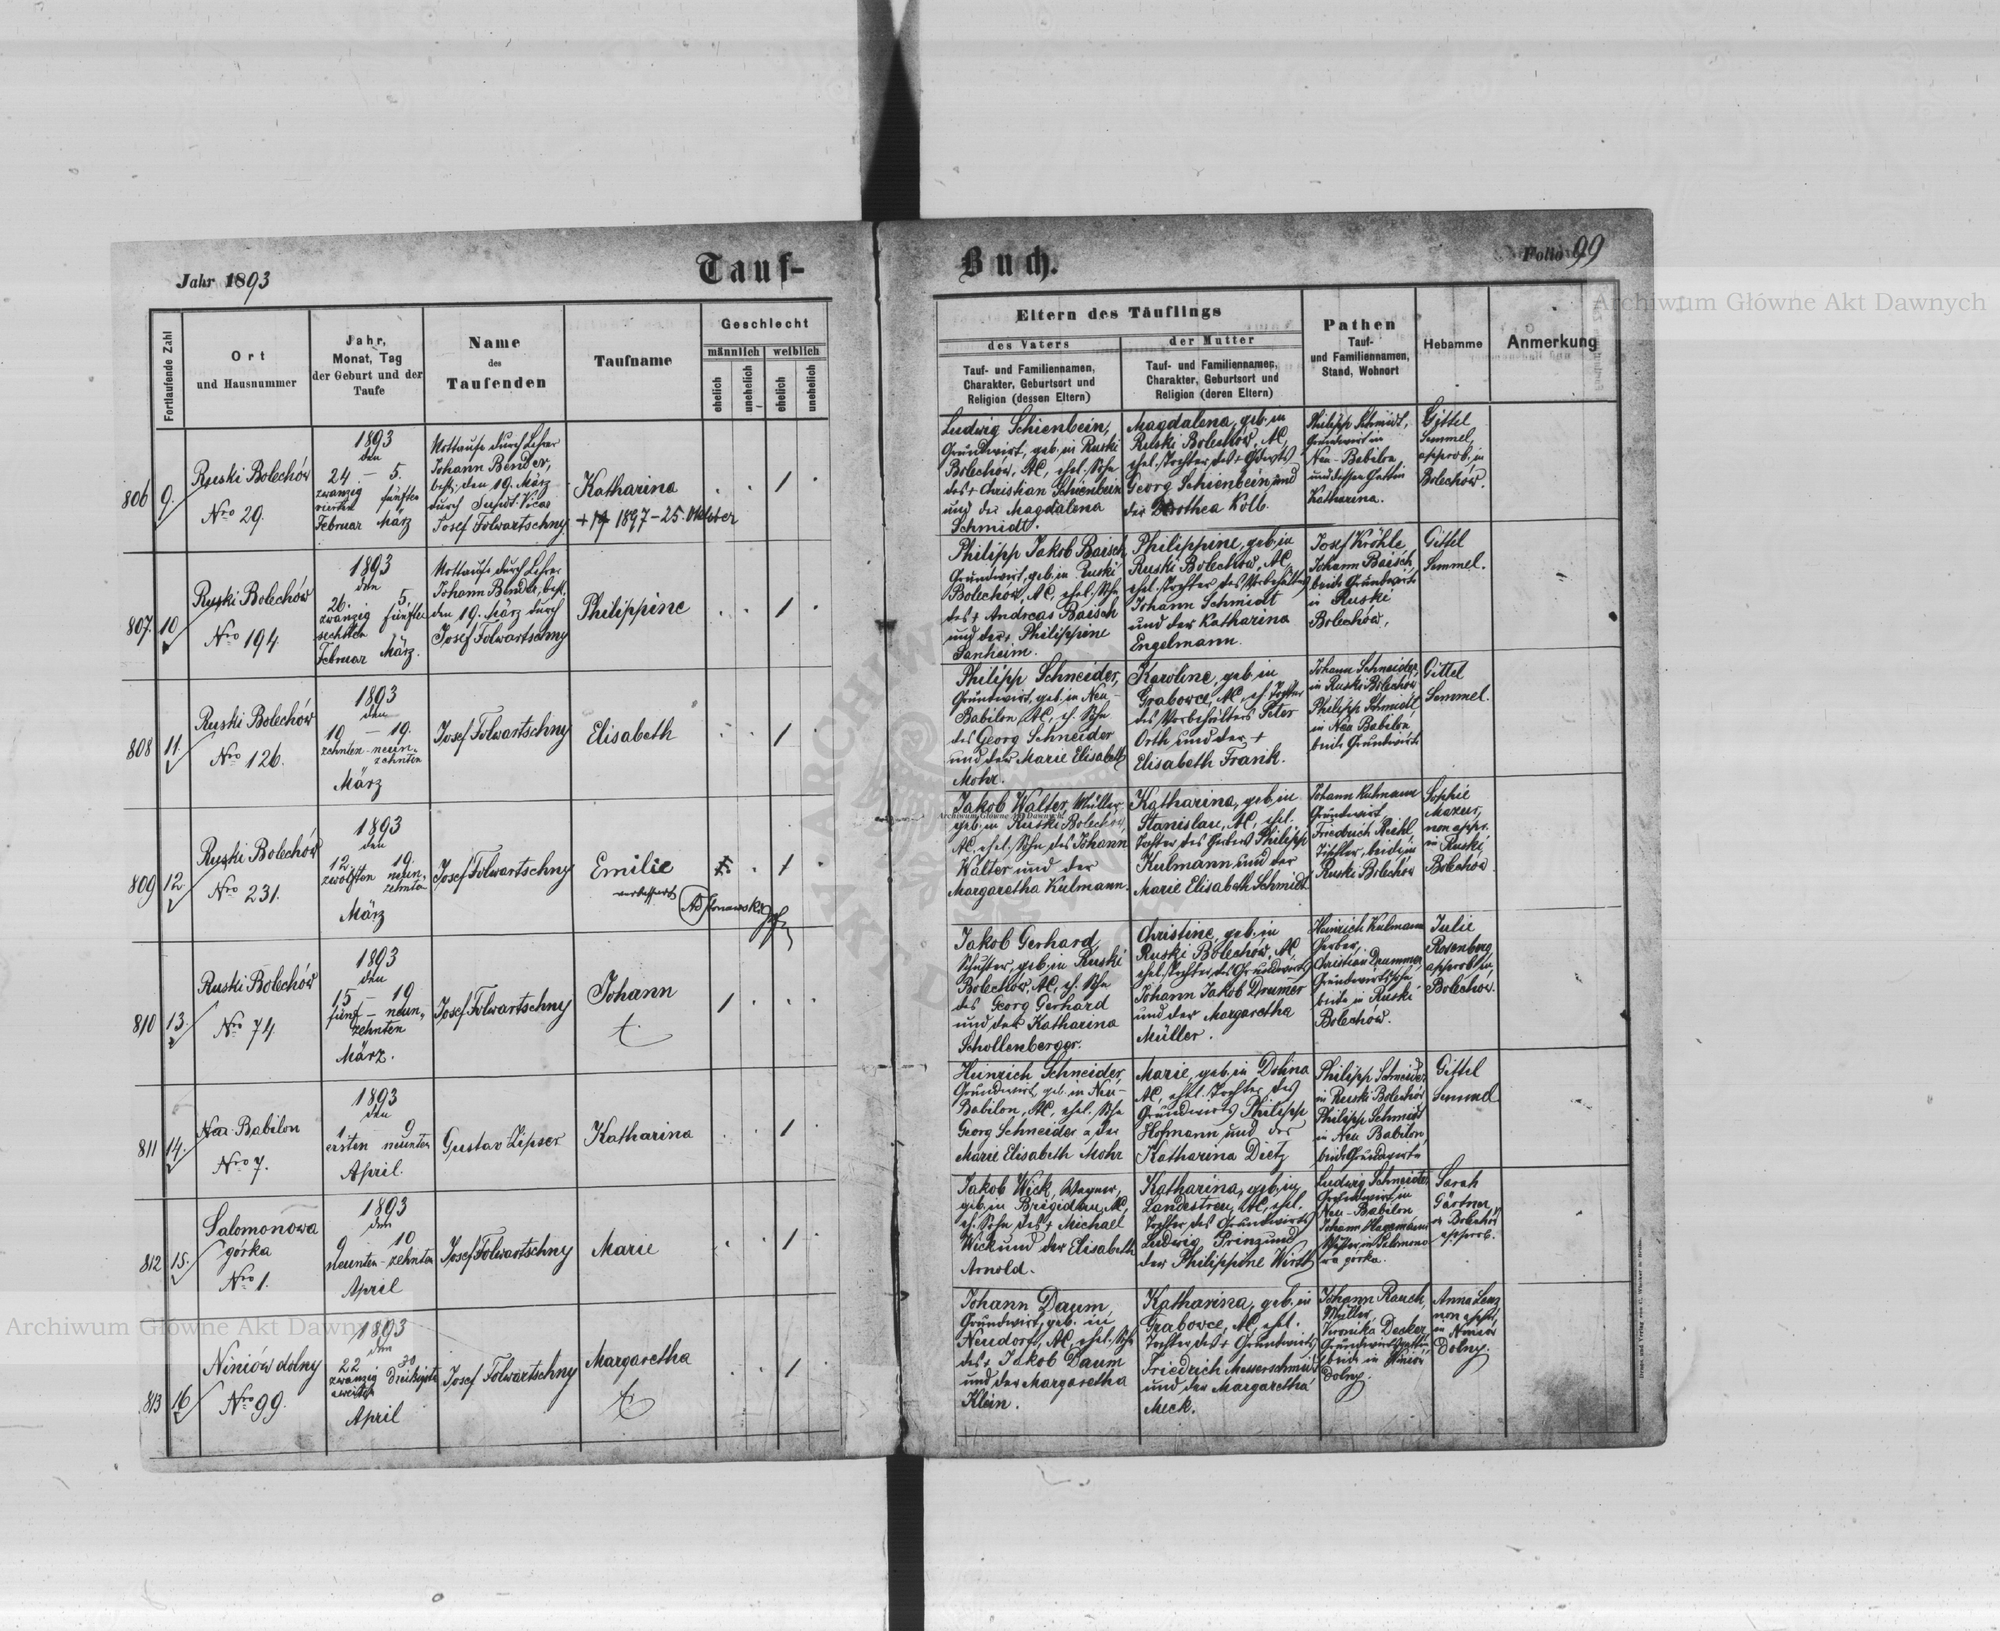 Jahr 1893
Tauf-
Buch.
Folio 99
Fortlaufende Zahl
Ort
und Hausnummer
Jahr,
Monat, Tag
der Geburt und der
Taufe
Name
des
Taufenden
Taufname
Geschlecht
männlich
weiblich
ehelich
unehelich
ehelich
unehelich
Eltern des Täuflings
des Vaters
Tauf- und Familiennamen,
Charakter, Geburtsort und
Religion (dessen Eltern)
der Mutter
Tauf- und Familiennamen,
Charakter, Geburtsort und
Religion (deren Eltern)
Pathen
Tauf-
und Familiennamen,
Stand, Wohnort
Hebamme
Anmerkung
806
9.
Ruski Bolechów
Nro 29.
1893
den
24 – 5.
zwanzig fünften
vierten
Februar März
Nottaufe durch Lehrer
Johann Bender,
best. den 19. März
durch Supdt. Vicar
Josef Folwartschny
Katharina
1897 – 25. Oktober
Ludwig Schienbein,
Grundwirt, geb. in Ruski
Bolechów, AC, ehel. Sohn
des + Christian Schienbein
und der Magdalena
Schmidt.
Magdalena, geb. in
Ruski Bolechów, AC,
ehel. Tochter des + Gdwts
Georg Schienbein und
der Dorothea Kolb.
Philipp Schmidt,
Grundwirt in
Neu-Babilon,
und dessen Gattin
Katharina.
Gittel
Semmel,
approb., in
Bolechów.
807.
10
Ruski Bolechów
Nro 194
1893
den
26. 5.
zwanzig fünften
sechsten
Februar März.
Nottaufe durch Lehrer
Johann Bender, best.
den 19. März durch
Josef Folwartschny
Philippine
Philipp Jakob Baisch
Grundwirt, geb. in Ruski
Bolechów, AC, ehel. Sohn
des + Andreas Baisch
und der + Philippine
Sanheim.
Philippine, geb. in
Ruski Bolechów, AC,
ehel. Tochter des Vorbehälters
Johann Schmidt
und der Katharina
Engelmann.
Josef Kröhle
Johann Baisch,
beide Grundwirte
in Ruski
Bolechów.
Gittel
Semmel.
808
11.
Ruski Bolechów
Nro 126.
1893
den
10 – 19.
zehnten - neun-
zehnten
März
Josef Folwartschny
Elisabeth
Philipp Schneider,
Grundwirt, geb. in Neu-
Babilon, AC, eh. Sohn
des Georg Schneider
und der Marie Elisabeth
Mohr.
Karoline, geb. in
Grabowce, AC, eh. Tochter
des Vorbehälters Peter
Orth und der +
Elisabeth Frank.
Johann Schneider,
in Ruski Bolechów
Philipp Schmidt,
in Neu Babilon,
beide Grundwirte
Gittel
Semmel.
809
12
Ruski Bolechów
Nro 231.
1893
den
12. 19.
zwölften neun-
zehnten
März
Josef Folwartschny
Emilie
verbessert
Jakob Walter, Müller,
geb. in Ruski Bolechów,
AC, ehel. Sohn des Johann
Walter und der
Margaretha Kulmann.
Katharina, geb. in
Stanislau, AC, ehel.
Tochter des Gerbers Philipp
Kulmann und der
Marie Elisabeth Schmidt
Johann Kulmann
Grundwirt
Friedrich Reihl,
Tischler, beide in
Ruski Bolechów
Sophie
Mazur,
non appr.
in Ruski
Bolechów.
810
13.
Ruski Bolechów
Nro 74
1893
den
15 – 19
fünf – neun-
zehnten
März.
Josef Folwartschny
Johann
Jakob Gerhard,
Schuster, geb. in Ruski
Bolechów, AC, eh. Sohn
des Georg Gerhard
und der Katharina
Schollenberger.
Christine, geb. in
Ruski Bolechów, AC,
ehel. Tochter des Grundwirts
Johann Jakob Drumer
und der Margaretha
Müller.
Heinrich Kulmann
Gerber,
Christian Drummer,
Grundwirtssohn
beide in Ruski
Bolechów.
Julie
Rosenberg
approb. in
Bolechów.
811
14.
Neu Babilon
Nro 7.
1893
den
1 9
ersten neunten
April.
Gustav Zipser
Katharina
Heinrich Schneider,
Grundwirt, geb. in Neu-
Babilon, AC, ehel. Sohn
Georg Schneider u. der
Marie Elisabeth Mohr
Marie, geb. in Dolina
AC, ehel. Tochter des
Grundwirts Philipp
Hofmann und der
Katharina Dietz
Philipp Schneider,
in Ruski Bolechów
Philipp Schmidt
in Neu Babilon,
beide Grundwirte
Gittel
Semmel
812
15.
Salomonowa
górka
Nro 1.
1893
den
9 10
neunten - zehnten
April
Josef Folwartschny
Marie
Jakob Wick, Wagner,
geb. in Brigidau, AC,
eh. Sohn des + Michael
Wick und der Elisabeth
Arnold.
Katharina, geb. in
Landestreu, AC, ehel.
Tochter des Grundwirts
Ludwig Prinz und
der Philippine Wirth
Ludwig Schneider,
Grundwirt, in
Neu-Babilon
Johann Hagemann
in Salomono-
wa górka.
Sarah
Gärtner,
in Bolechów
approb.
813
16
Niniów dolny
Nro 99.
1893
den
22 30
zwanzig Dreißigsten
zweiten
April
Josef Folwartschny
Margaretha
Johann Daum,
Grundwirt, geb. in
Neudorf, AC, ehel. Sohn
des + Jakob Daum
und der Margaretha
Klein.
Katharina, geb. in
Grabowce, AC, ehel.
Tochter des + Grundwirts
Friedrich Messerschmidt
und der Margaretha
Meck.
Johann Rauch,
Müller,
Veronika Decker,
Grundwirtsgattin,
beide in Niniów
Dolny.
Anna Lenz
non appr.,
in Niniów
Dolny.
Archiwum Główne Akt Dawnych
Archiwum Główne Akt Dawnych
Archiwum Główne Akt Dawnych